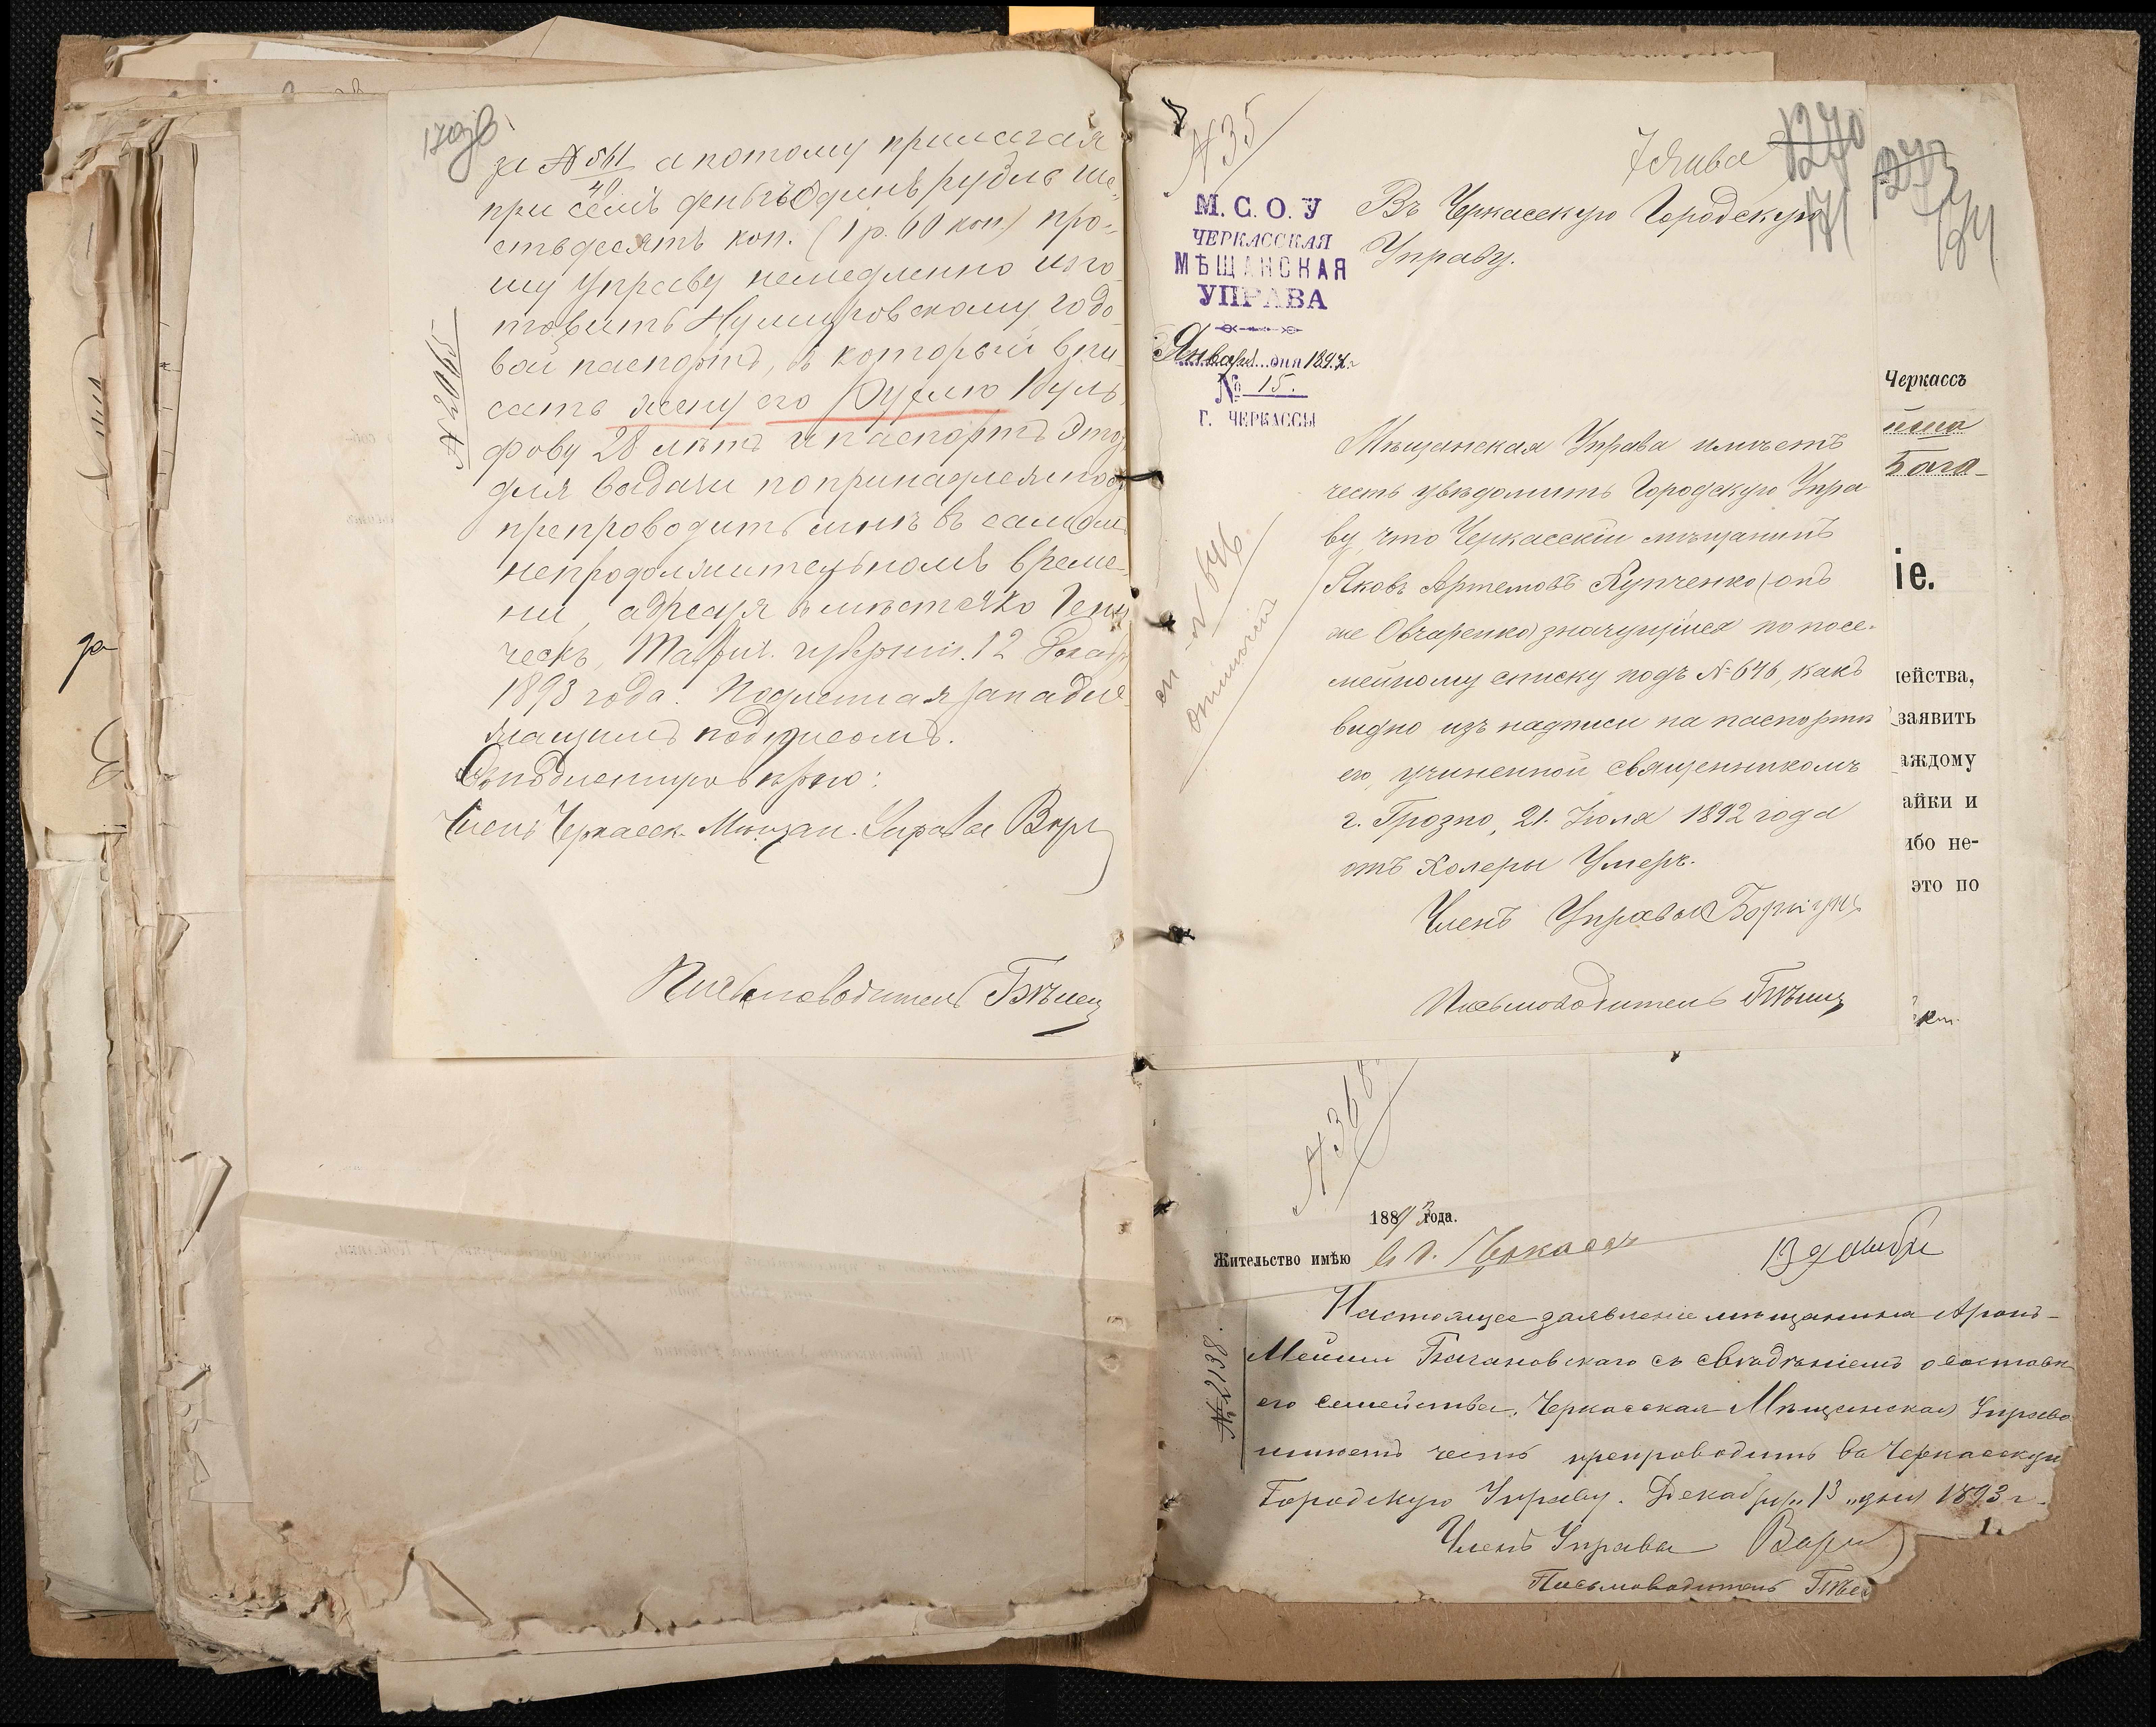 170 об
за № 561/40 а потому прилагая
при семъ денегъ Одинъ рубль ше-
стьдесятъ коп. (1 р. 60 коп.) про-
шу Управу немедленно изго-
товить годо-
вой паспортъ, в который впи-
сать жену его Руслю Вуль-
фову 28 лѣтъ и паспортъ этотъ
для выдачи по принадлежности
препроводить мнѣ въ самом
непродолжительномъ време-
ни, адресуя в мѣстечко Гени-
ческъ, Таврич. губерніи. 12 Декабря
1893 года. Подлинная за надле-
жащимъ подписомъ.
Съ подлиннымъ вѣрно:
Членъ Черкасск. Мѣщан. Управы
Письмоводитель
№ 2095
№ 35
7 Янва
1270
171
М. С. О. У
ЧЕРКАССКАЯ
МѢЩАНСКАЯ
УПРАВА
Января дня 1894 г.
№ 15.
Г. ЧЕРКАССЫ
Въ Черкасскую Городскую
Управу.
Мѣщанская Управа имѣетъ
честь увѣдомить Городскую Упра
ву, что Черкасскій мѣщанинъ
Яковъ Артемовъ Купченко (онъ
же Овчаренко) значущійся по посе-
мейному списку подъ № 646, какъ
видно изъ надписи на паспортѣ
его, учиненной священникомъ
г. Грозно, 21. Іюля 1892 года
отъ холеры Умеръ.
Членъ Управы
Письмоводитель
сп. № 646.
отмѣтить
Черкассъ
Бога-
іе.
ейства,
заявить
аждому
айки и
ибо не-
это по
да
№ 368
1893 года.
Жительство имѣю в г. Черкассъ
13 декабря
№ 2138.
Настоящее заявленіе мѣщанина Аронъ-
Мейши Богановскаго съ свѣдѣніемъ о составѣ
его семейства, Черкасская Мѣщанская Управа
имѣетъ честь препроводить въ Черкасскую
Городскую Управу. Декабря „13„ дня 1893 г.
Членъ Управы
Письмоводитель